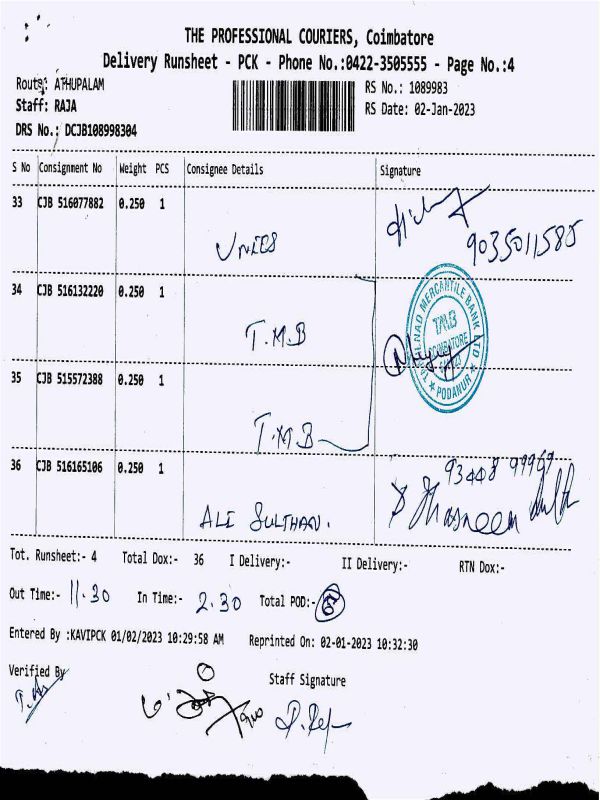 THE PROFESSIONAL COURIERS, Coimbatore
Delivery Runsheet - PCK - Phone No.:0422-3505555 - Page No.:4
Route: ATHUPALAM
RS No.: 1089983
Staff: RAJA
RS Date: 02-Jan-2023
DRS No.: DCJB108998304
S No Consignment No Weight PCS Consignee Details Signature
33 CJB 516077882 0.250 1
UNEES
9035011585
34 CJB 516132220 0.250 1
T.M.B
TAMILNAD MERCANTILE BANK LTD
TMB
COIMBATORE
PODANUR
35 CJB 515572388 0.250 1
T.M.B
36 CJB 516165106 0.250 1
ALI SULTHAN.
Tot. Runsheet:- 4 Total Dox:- 36 I Delivery:- II Delivery:- RTN Dox:-
Out Time:- 11.30 In Time:- 2.30 Total POD:-
Entered By :KAVIPCK 01/02/2023 10:29:58 AM Reprinted On: 02-01-2023 10:32:30
Verified By
Staff Signature